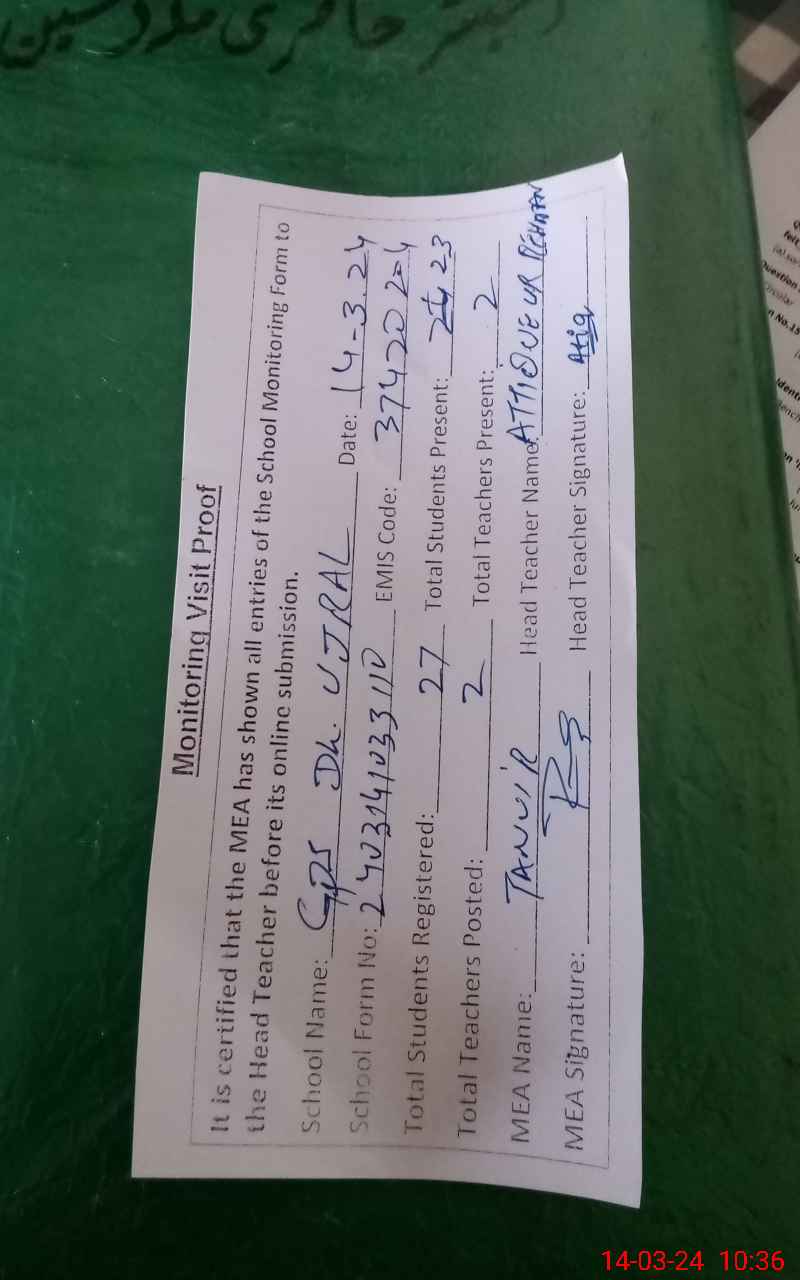 رجسٹر حاضری ملازمین
Monitoring Visit Proof
It is certified that the MEA has shown all entries of the School Monitoring Form to
the Head Teacher before its online submission.
School Name: GPS Dh. UJRAL Date: 14-3.24
School Form No: 2403141033110 EMIS Code: 37420204
Total Students Registered: 27 Total Students Present: 23
Total Teachers Posted: 2 Total Teachers Present: 2
MEA Name: TANVIR Head Teacher Name: ATTIQUE UR REHMAN
MEA Signature: Head Teacher Signature: Atiq
14-03-24 10:36